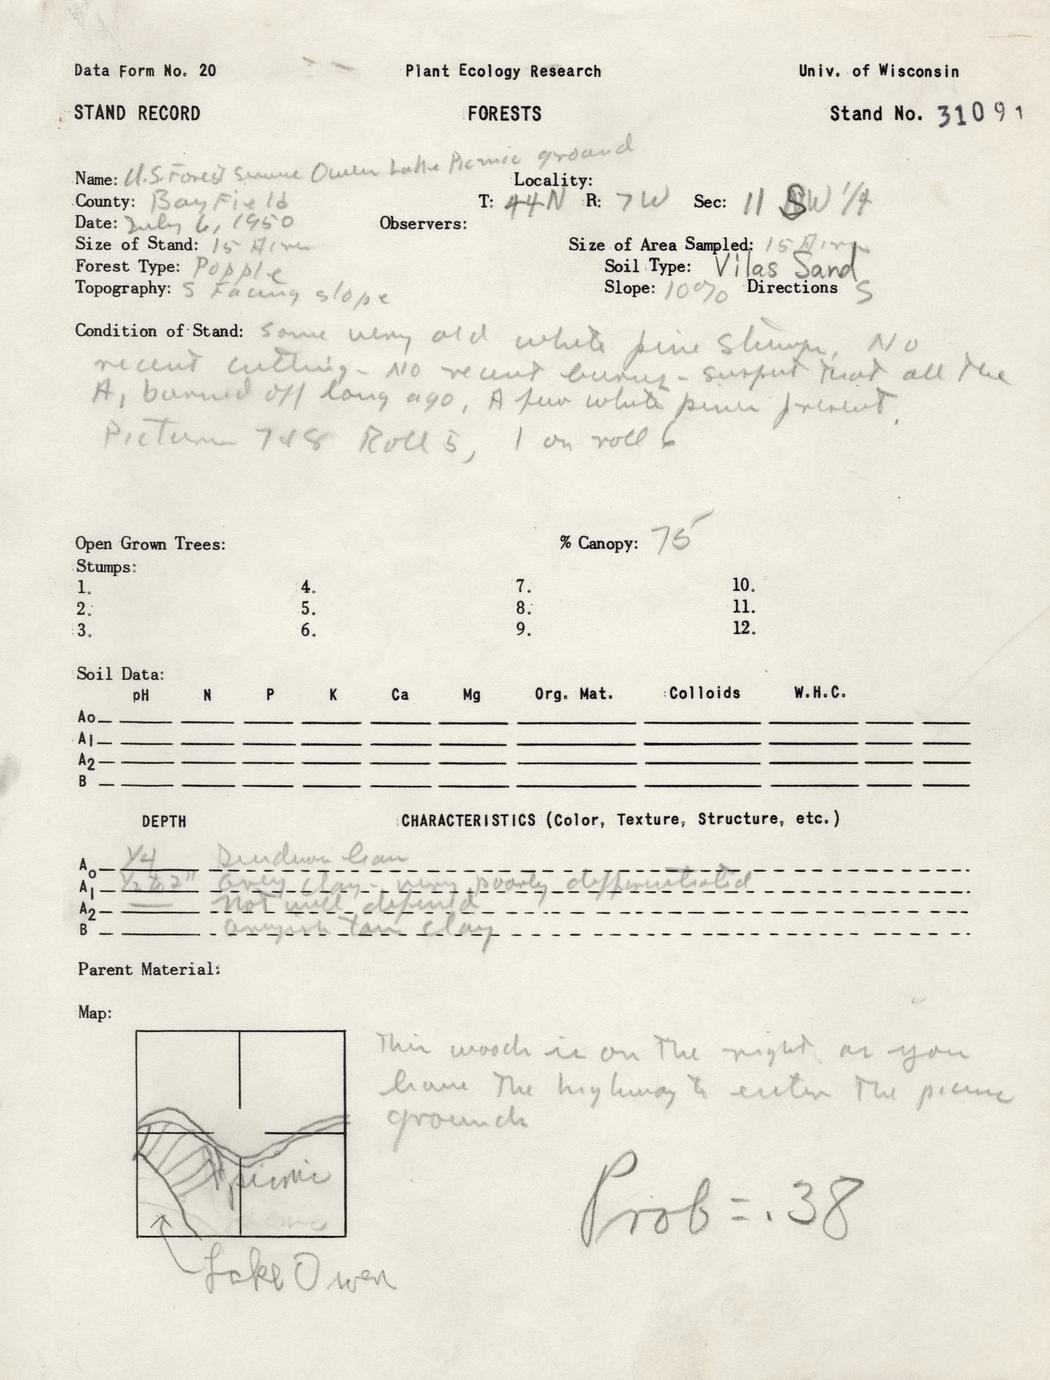 Data Form No. 20 Plant Ecology Research Univ. of Wisconsin
STAND RECORD FORESTS Stand No. 31091
Name: U.S. Forest Service Owen Lake Picnic ground Locality:
County: BayField T: 44N R: 7W Sec: 11 SW 1/4
Date: July 6, 1950 Observers:
Size of Stand: 15 Acres Size of Area Sampled: 15 Acres
Forest Type: Popple Soil Type: Vilas Sand
Topography: S Facing slope Slope: 10% Directions S
Condition of Stand: Some very old white pine stumps. No
recent cutting - No recent burns - suspect that all the
A1 burned off long ago. A few white pines present.
Pictures 7+8 Roll 5, 1 on roll 6
Open Grown Trees: % Canopy: 75
Stumps:
1. 4. 7. 10.
2. 5. 8. 11.
3. 6. 9. 12.
Soil Data:
pH N P K Ca Mg Org. Mat. Colloids W.H.C.
Ao
A1
A2
B
DEPTH CHARACTERISTICS (Color, Texture, Structure, etc.)
Ao 1/4
A1 1/2 to 2" Grey clay - very poorly differentiated
A2 Not well defined
B Greyish tan clay
Parent Material:
Map:
This woods is on the right as you
leave the highway to enter the picnic
grounds
picnic
Prob = .38
Lake Owen